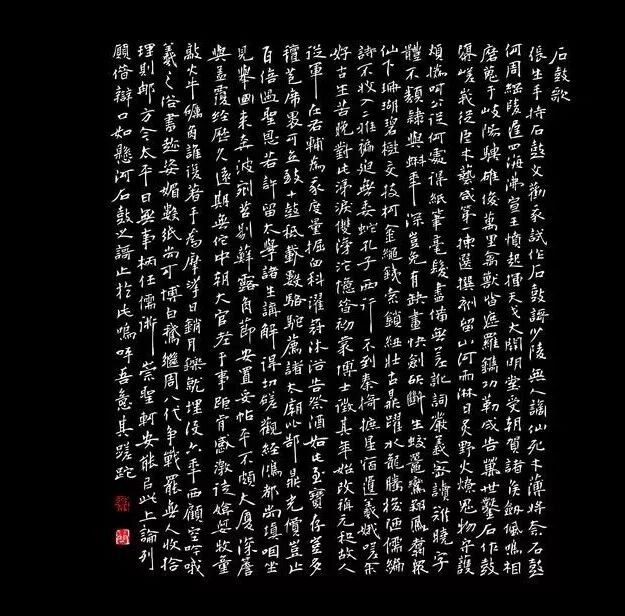 石鼓歌
張生手持石鼓文勸我試作石鼓謌少陵無人謫仙死才薄將奈石鼓
何周綱陵遲四海沸宣王憤起揮天戈大開明堂受朝賀諸侯劍佩鳴相
磨蒐于岐陽騁雄俊萬里禽獸皆遮羅鐫功勒成告萬世鑿石作鼓
隳嵯峨從臣才藝咸第一揀選撰刻留山阿雨淋日炙野火燎鬼物守護
煩撝呵公從何處得紙筆毫髮盡備無差訛詞嚴義密讀難曉字
體不類隸與蝌年深豈免有缺畫快劍斫斷生蛟鼉鸞翔鳳翥眾
仙下珊瑚碧樹交枝柯金繩鐵索鎖鈕壯古鼎躍水龍騰梭陋儒編
詩不收入二雅褊迫無委蛇孔子西行不到秦掎摭星宿遺羲娥嗟余
好古生苦晚對此涕淚雙滂沱憶昔初蒙博士徵其年始改稱元和故人
從軍在右輔為我度量掘臼科濯冠沐浴告祭酒如此至寶存豈多
氈苞席裹可立致十鼓秪載數駱駝薦諸太廟比郜鼎光價豈止
百倍過聖恩若許留太學諸生講解得切磋觀經鴻都尚填咽坐
見舉國來奔波剜苔剔蘚露角節安置妥帖平不頗大廈深簷
與蓋覆經歷久遠期無佗中朝大官老于事詎肯感激徒媕婀牧童
敲火牛礪角誰復著手為摩挲日銷月鑠就埋沒六年西顧空吟哦
羲之俗書趁姿媚數紙尚可博白鵝繼周八代爭戰罷無人收拾
理則那方今太平日無事柄任儒術崇聖軻安能以此上論列
願借辯口如懸河石鼓之謌止於此嗚呼吾意其蹉跎